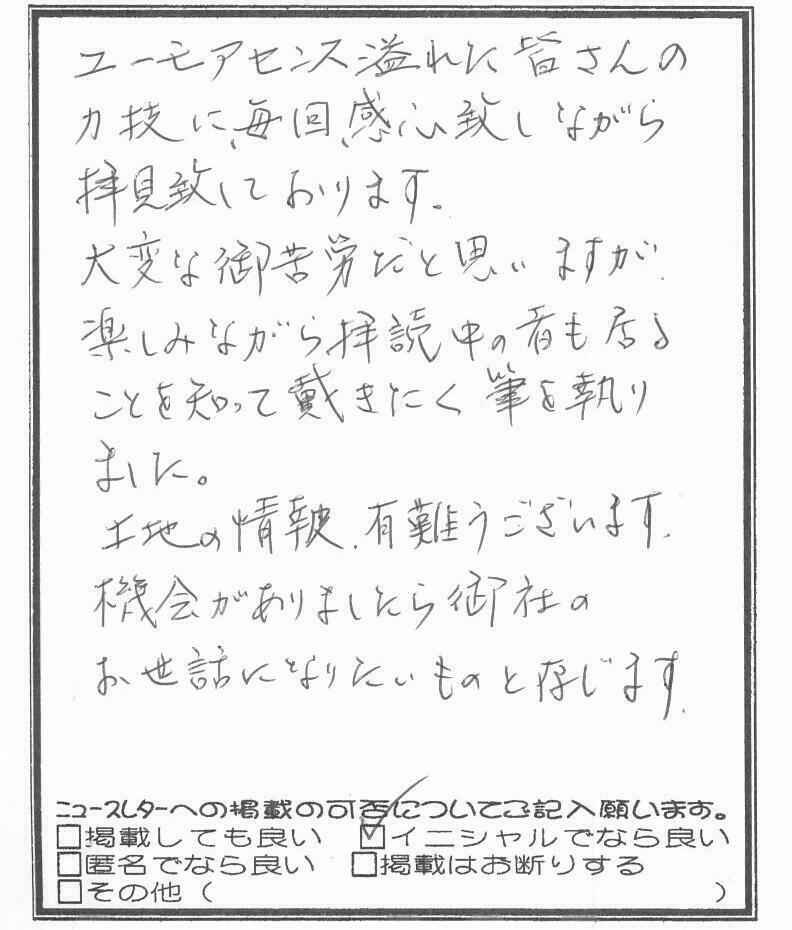 ユーモアセンス溢れた皆さんの
力技に、毎回、感心致しながら
拝見致しております。
大変な御苦労だと思いますが、
楽しみながら拝読中の者も居る
ことを知って戴きたく筆を執り
ました。
土地の情報、有難うございます。
機会がありましたら御社の
お世話になりたいものと存じます。
ニュースレターへの掲載の可否についてご記入願います。
□掲載しても良い ☑イニシャルでなら良い
□匿名でなら良い □掲載はお断りする
□その他( )